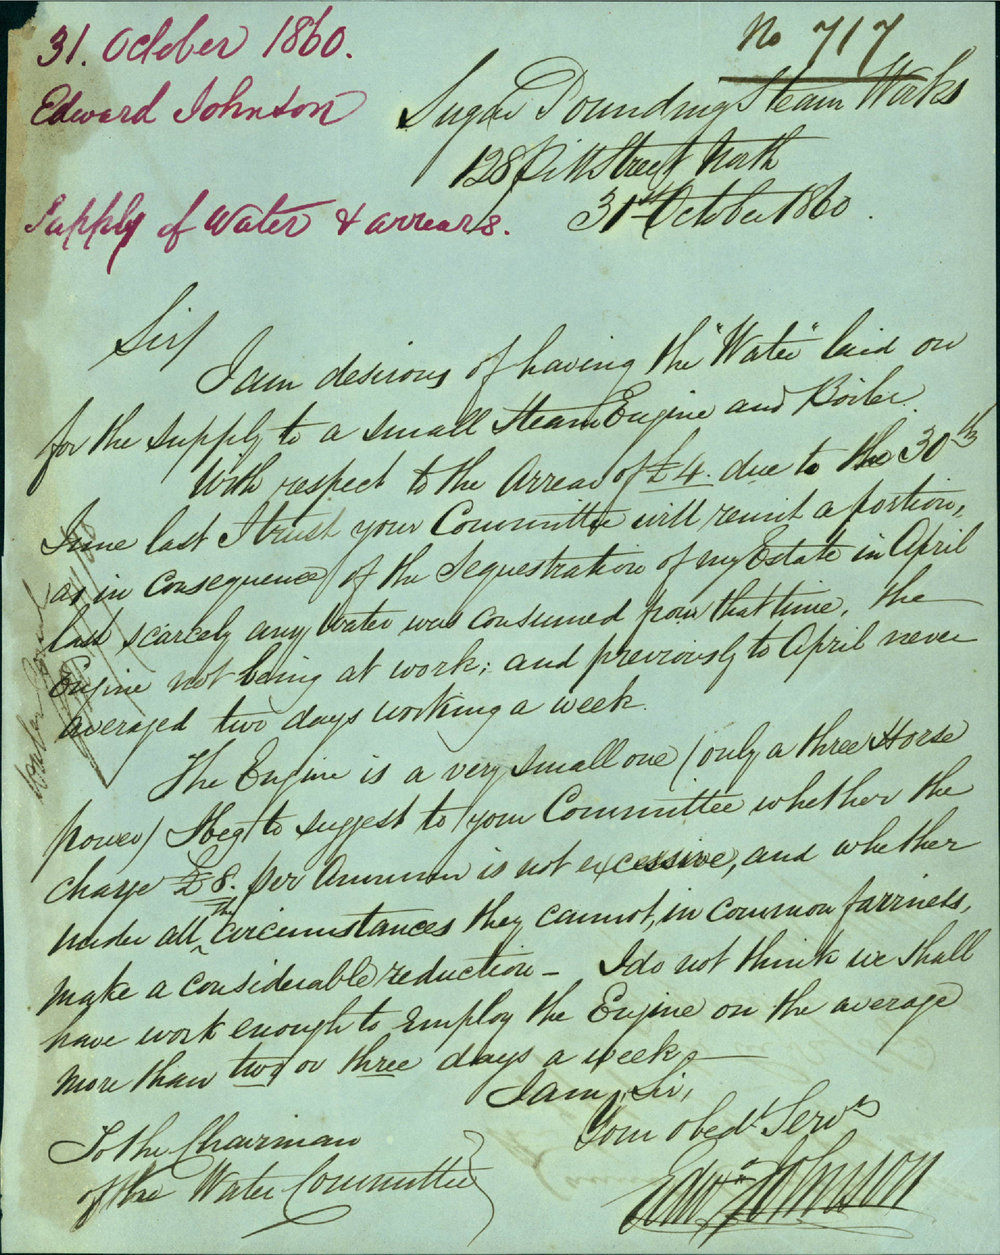 31. October 1860.
Edward Johnson
Supply of Water & arrears.
No 717
Sugar Pounding Steam Works
128 Pitt Street North
31st October 1860.
Sir/
I am desirous of having the "Water" laid on
for the supply to a small Steam Engine and Boiler.
With respect to the Arrear of £4 due to the 30th
June last I trust your Committee will remit a portion,
as in consequence of the Sequestration of my Estate in April
last scarcely any Water was consumed from that time, the
Engine not being at work; and previously to April never
averaged two days working a week.
The Engine is a very small one (only a three Horse
power) I beg to suggest to your Committee whether the
charge £8. per Annum is not excessive, and whether
under all the circumstances they cannot, in common fairness,
make a considerable reduction – I do not think we shall
have work enough to employ the Engine on the average
more than two or three days a week,
I am, Sir,
Your obedt Servt
Edwd Johnson
To the Chairman
of the Water Committee